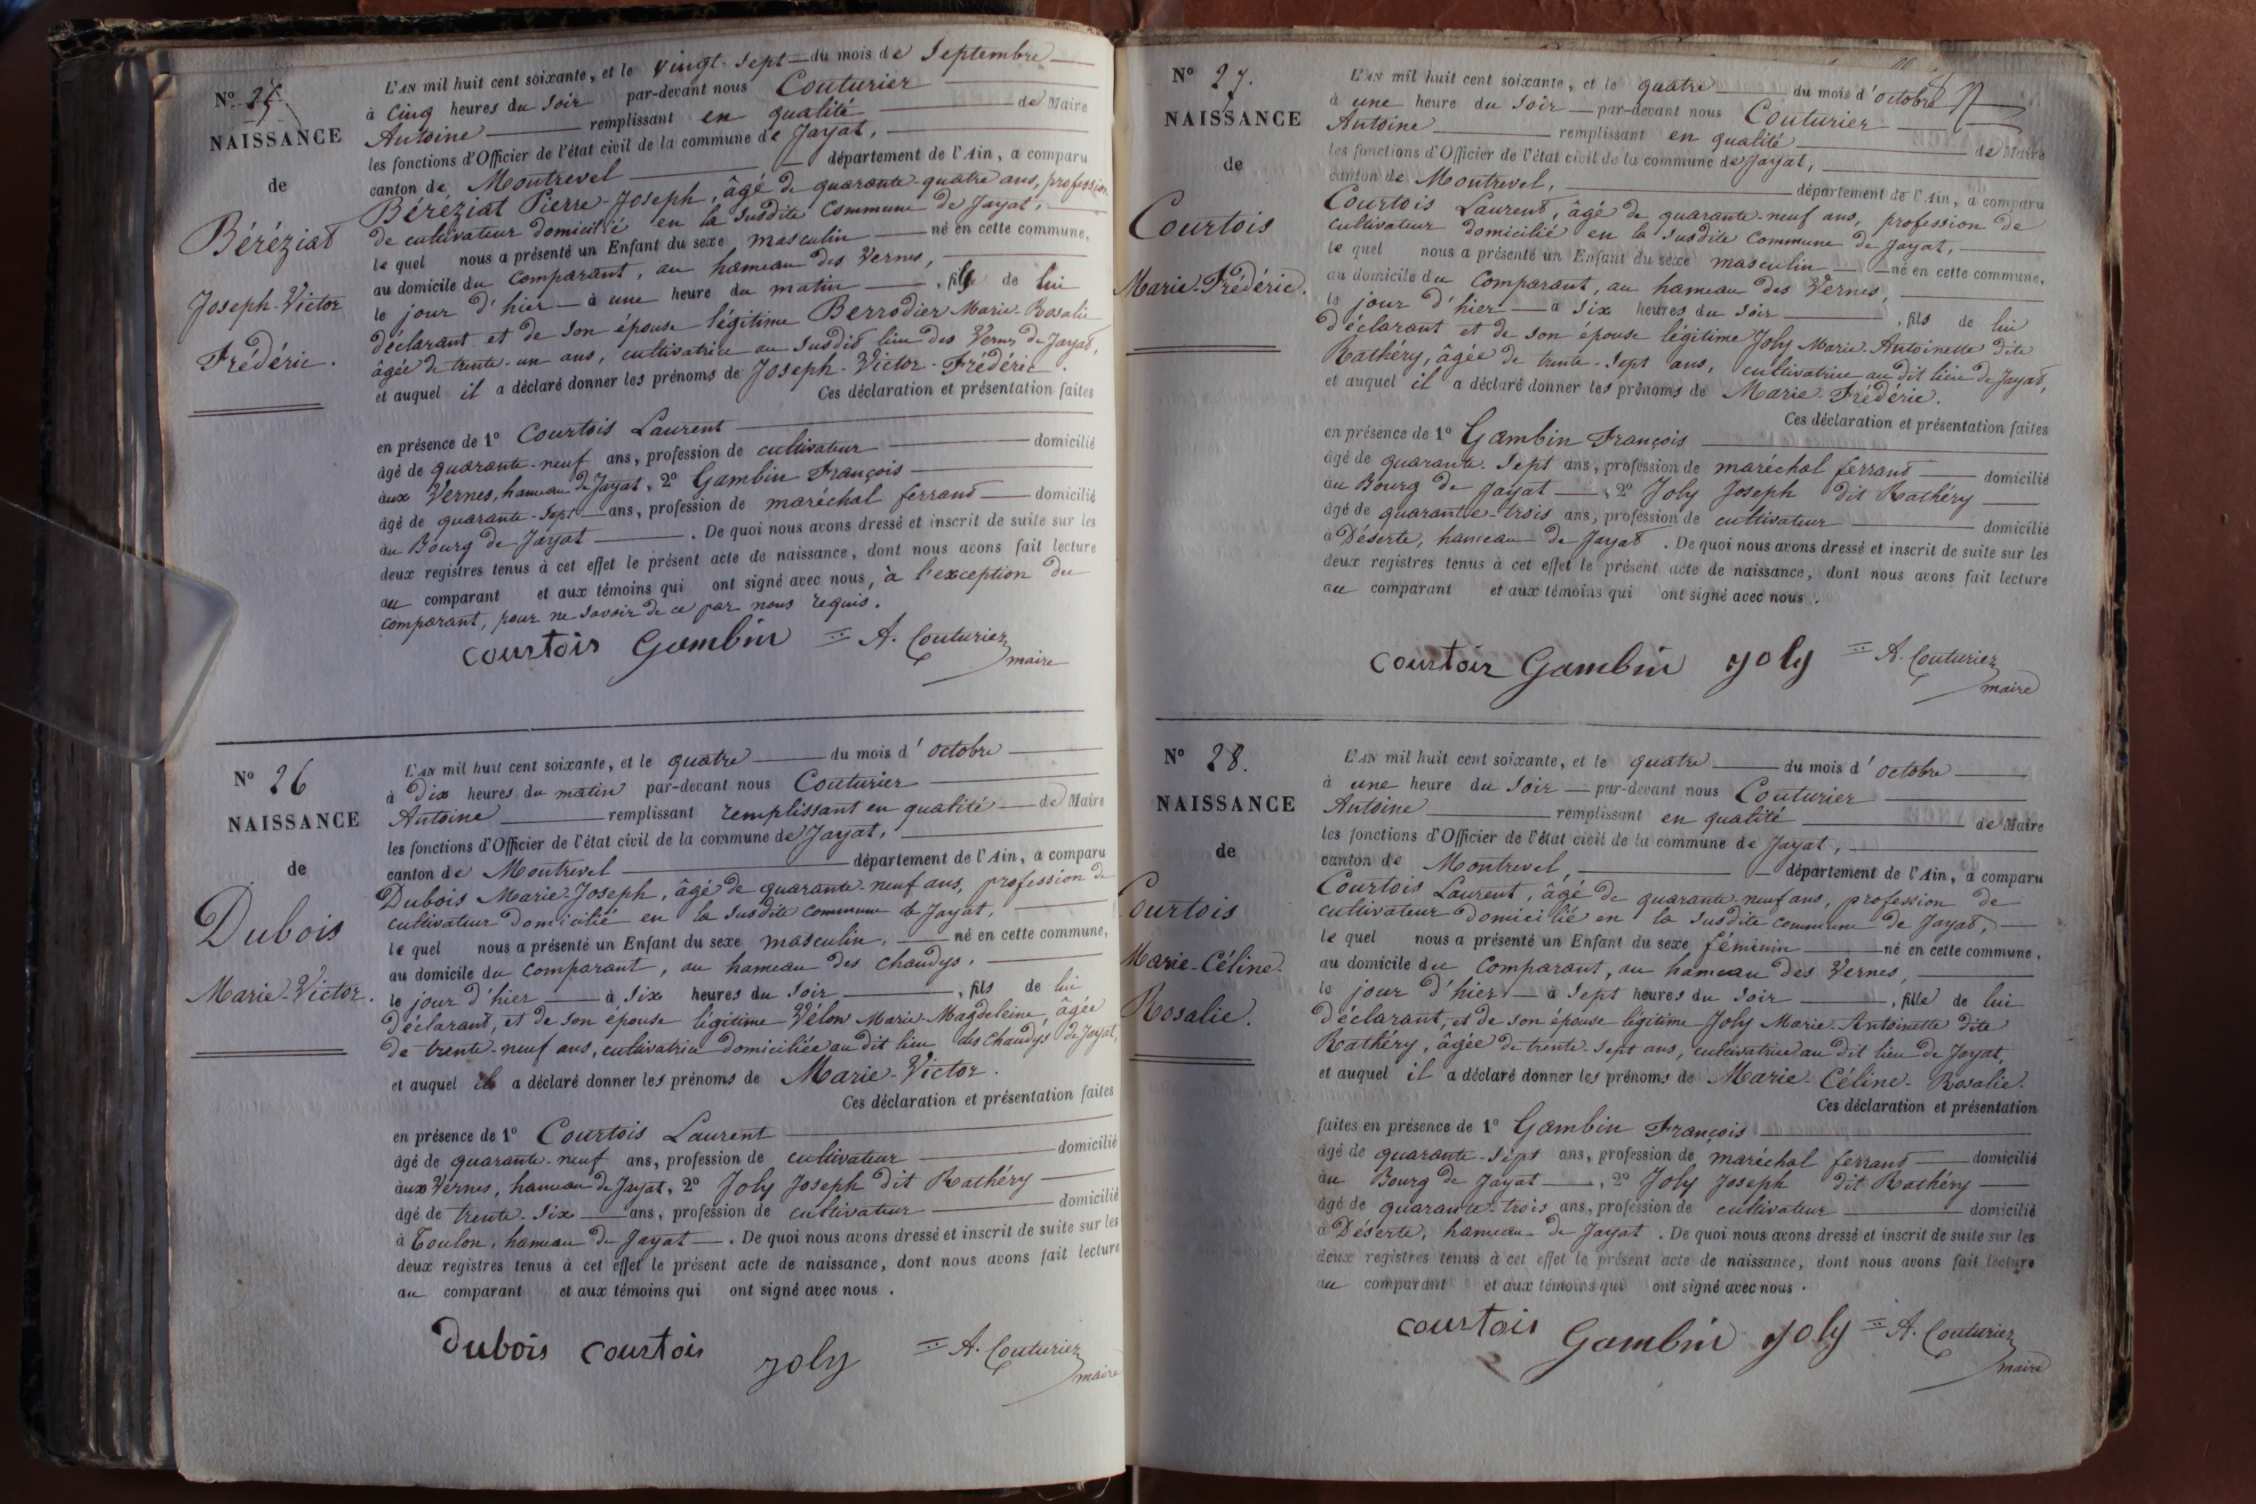 Nº 25
NAISSANCE
de
Béréziat
Joseph-Victor
Frédéric.
L'AN mil huit cent soixante, et le vingt-sept du mois de Septembre
à Cinq heures du soir par-devant nous Couturier
Antoine remplissant en qualité de Maire
les fonctions d'Officier de l'état civil de la commune de Jayat,
canton de Montrevel département de l'Ain, a comparu
Béréziat Pierre-Joseph, âgé de quarante-quatre ans, profession
de cultivateur domicilié en la susdite Commune de Jayat,
lequel nous a présenté un Enfant du sexe masculin né en cette commune,
au domicile du Comparant, au hameau des Vernes,
le jour d'hier à une heure du matin, fils de lui
déclarant et de son épouse légitime Berrodier Marie-Rosalie
âgée de trente-un ans, cultivatrice au susdit lieu des Vernes de Jayat,
et auquel il a déclaré donner les prénoms de Joseph-Victor-Frédéric.
Ces déclaration et présentation faites
en présence de 1º Courtois Laurent
âgé de quarante-neuf ans, profession de cultivateur domicilié
aux Vernes, hameau de Jayat, 2º Gambin François
âgé de quarante-sept ans, profession de maréchal ferrant domicilié
au Bourg de Jayat. De quoi nous avons dressé et inscrit de suite sur les
deux registres tenus à cet effet le présent acte de naissance, dont nous avons fait lecture
au comparant et aux témoins qui ont signé avec nous, à l'exception du
comparant, pour ne savoir de ce par nous requis.
Courtois Gambin A. Couturier
maire
Nº 26
NAISSANCE
de
Dubois
Marie-Victor.
L'AN mil huit cent soixante, et le quatre du mois d'octobre
à Dix heures du matin par-devant nous Couturier
Antoine remplissant remplissant en qualité de Maire
les fonctions d'Officier de l'état civil de la commune de Jayat,
canton de Montrevel département de l'Ain, a comparu
Dubois Marie-Joseph, âgé de quarante-neuf ans, profession de
cultivateur domicilié en la susdite commune de Jayat,
lequel nous a présenté un Enfant du sexe masculin, né en cette commune,
au domicile du comparant, au hameau des Chaudys,
le jour d'hier à six heures du soir, fils de lui
déclarant, et de son épouse légitime Vélon Marie-Magdeleine, âgée
de trente-neuf ans, cultivatrice domiciliée au dit lieu des Chaudys de Jayat,
et auquel il a déclaré donner les prénoms de Marie-Victor.
Ces déclaration et présentation faites
en présence de 1º Courtois Laurent
âgé de quarante-neuf ans, profession de cultivateur domicilié
aux Vernes, hameau de Jayat, 2º Joly Joseph dit Rathéry
âgé de trente-six ans, profession de cultivateur domicilié
à Toulon, hameau de Jayat. De quoi nous avons dressé et inscrit de suite sur les
deux registres tenus à cet effet le présent acte de naissance, dont nous avons fait lecture
au comparant et aux témoins qui ont signé avec nous.
Dubois Courtois Joly A. Couturier
maire
Nº 27.
NAISSANCE
de
Courtois
Marie-Frédéric.
L'AN mil huit cent soixante, et le quatre du mois d'octobre
à une heure du soir par-devant nous Couturier
Antoine remplissant en qualité de Maire
les fonctions d'Officier de l'état civil de la commune de Jayat,
canton de Montrevel, département de l'Ain, a comparu
Courtois Laurent, âgé de quarante-neuf ans, profession de
cultivateur domicilié en la susdite Commune de Jayat,
lequel nous a présenté un Enfant du sexe masculin né en cette commune,
au domicile du Comparant, au hameau des Vernes,
le jour d'hier à six heures du soir, fils de lui
déclarant et de son épouse légitime Joly Marie-Antoinette dite
Rathéry, âgée de trente-sept ans, cultivatrice au dit lieu de Jayat,
et auquel il a déclaré donner les prénoms de Marie-Frédéric.
Ces déclaration et présentation faites
en présence de 1º Gambin François
âgé de quarante-sept ans, profession de maréchal ferrant domicilié
au Bourg de Jayat, 2º Joly Joseph dit Rathéry
âgé de quarante-trois ans, profession de cultivateur domicilié
à Déserte, hameau de Jayat. De quoi nous avons dressé et inscrit de suite sur les
deux registres tenus à cet effet le présent acte de naissance, dont nous avons fait lecture
au comparant et aux témoins qui ont signé avec nous.
Courtois Gambin Joly A. Couturier
maire
Nº 28.
NAISSANCE
de
Courtois
Marie-Céline-
Rosalie.
L'AN mil huit cent soixante, et le quatre du mois d'octobre
à une heure du soir par-devant nous Couturier
Antoine remplissant en qualité de Maire
les fonctions d'Officier de l'état civil de la commune de Jayat,
canton de Montrevel, département de l'Ain, a comparu
Courtois Laurent, âgé de quarante-neuf ans, profession de
cultivateur domicilié en la susdite commune de Jayat,
lequel nous a présenté un Enfant du sexe féminin né en cette commune,
au domicile du Comparant, au hameau des Vernes,
le jour d'hier à sept heures du soir, fille de lui
déclarant, et de son épouse légitime Joly Marie-Antoinette dite
Rathéry, âgée de trente-sept ans, cultivatrice au dit lieu de Jayat,
et auquel il a déclaré donner les prénoms de Marie-Céline-Rosalie.
Ces déclaration et présentation
faites en présence de 1º Gambin François
âgé de quarante-sept ans, profession de maréchal ferrant domicilié
au Bourg de Jayat, 2º Joly Joseph dit Rathéry
âgé de quarante-trois ans, profession de cultivateur domicilié
à Déserte, hameau de Jayat. De quoi nous avons dressé et inscrit de suite sur les
deux registres tenus à cet effet le présent acte de naissance, dont nous avons fait lecture
au comparant et aux témoins qui ont signé avec nous.
Courtois Gambin Joly A. Couturier
maire